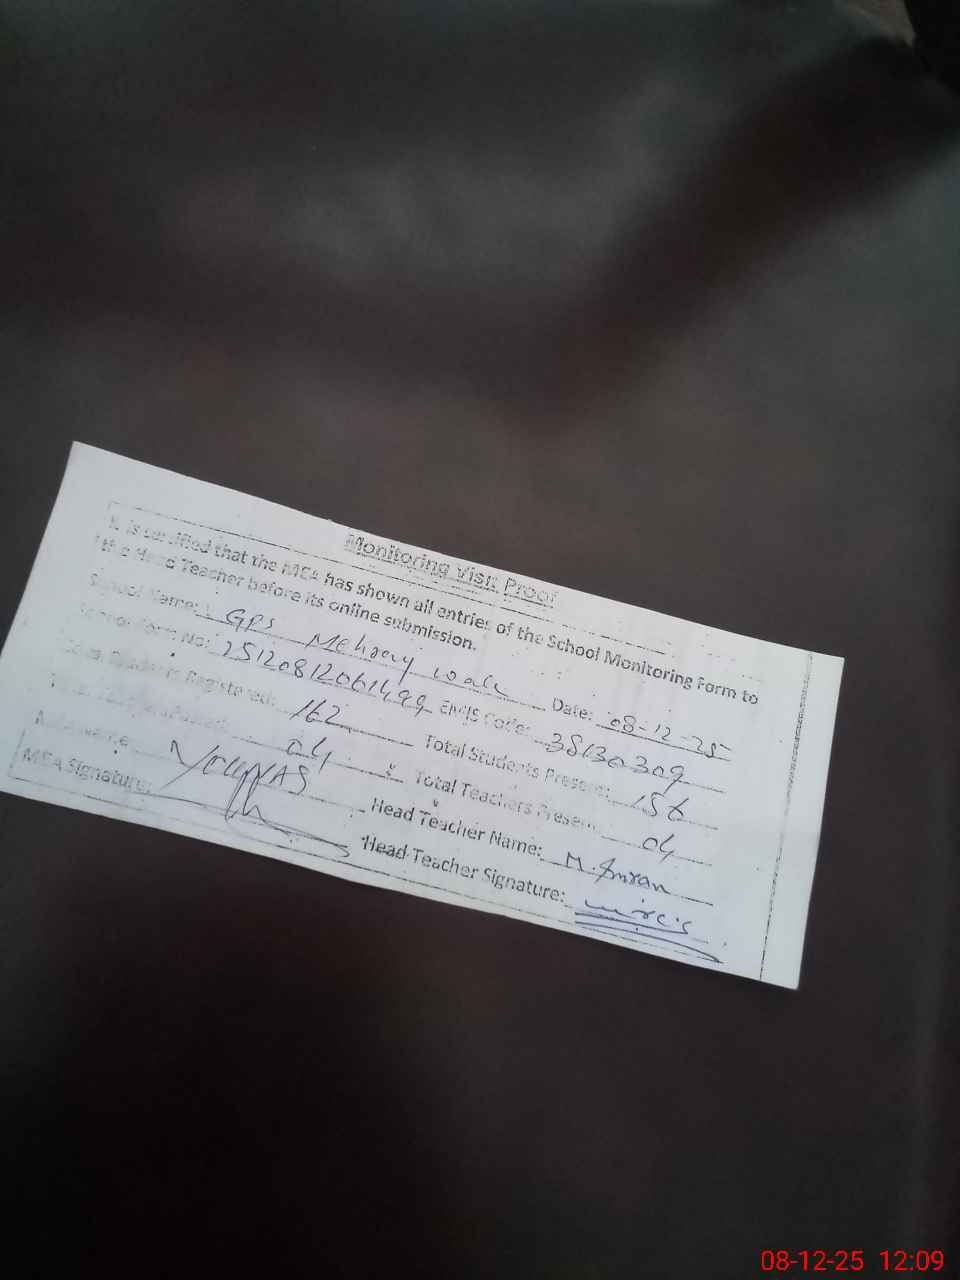 Monitoring Visit Proof
It is certified that the MEA has shown all entries of the School Monitoring Form to
the Head Teacher before its online submission.
School Name: GPS Mehray wali Date: 08-12-25
School Form No: 25120812061499 EMIS Code: 38130309
Total Students Registered: 162 Total Students Present: 156
Total Teachers Posted: 04 Total Teachers Present: 04
MEA Name YOUNAS Head Teacher Name: M Imran
MEA Signature: Head Teacher Signature:
08-12-25 12:09